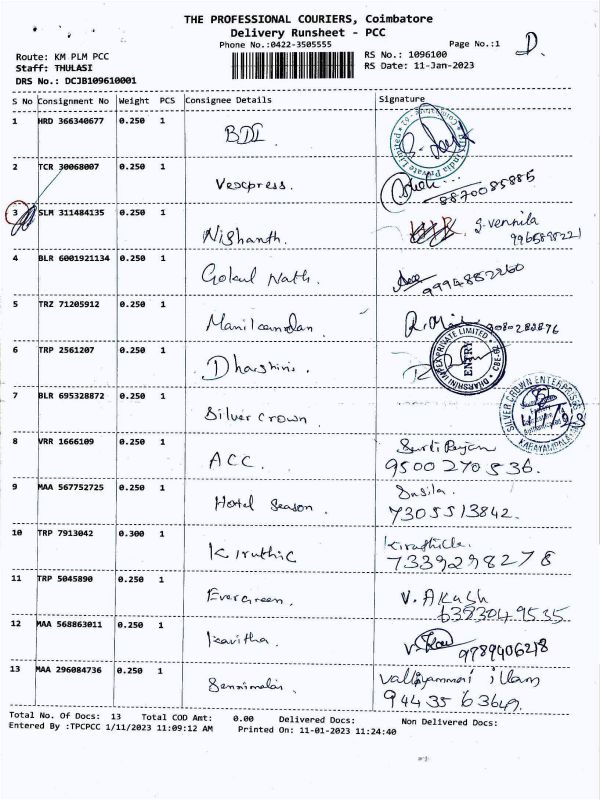 THE PROFESSIONAL COURIERS, Coimbatore
Delivery Runsheet - PCC
Phone No.:0422-3505555 Page No.:1 D.
Route: KM PLM PCC RS No.: 1096100
Staff: THULASI RS Date: 11-Jan-2023
DRS No.: DCJB109610001
S No Consignment No Weight PCS Consignee Details Signature
1 HRD 366340677 0.250 1 BDI
2 TCR 30068007 0.250 1 Vexpress. 8870085885
3 SLM 311484135 0.250 1 Nishanth. S. Vennila
4 BLR 6001921134 0.250 1 Gokul Nath. 9994882260
5 TRZ 71205912 0.250 1 Manikandan
6 TRP 2561207 0.250 1 Dharshini. ENTRY
7 BLR 695328872 0.250 1 Silver Crown SILVER CROWN ENTERPRISES
8 VRR 1666109 0.250 1 ACC. 9500270536.
9 MAA 567752725 0.250 1 Hotel Season. Susila.
7305513842.
10 TRP 7913042 0.300 1 Kiruthic
7339298278
11 TRP 5045890 0.250 1 Evergreen. V. Akash
6393049535
12 MAA 568863011 0.250 1 Kavitha. 9789406218
13 MAA 296084736 0.250 1 Sennimalai. Valliyammai illam
9443563649.
Total No. Of Docs: 13 Total COD Amt: 0.00 Delivered Docs: Non Delivered Docs:
Entered By :TPCPCC 1/11/2023 11:09:12 AM Printed On: 11-01-2023 11:24:40